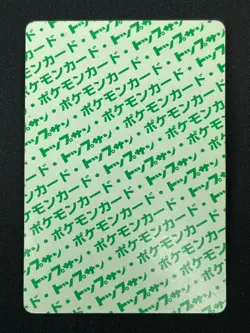 トップサン・ポケモンカード
ポケモンカード・トップサン
トップサン・ポケモンカード
ポケモンカード・トップサン
トップサン・ポケモンカード
ポケモンカード・トップサン
トップサン・ポケモンカード
ポケモンカード・トップサン
トップサン・ポケモンカード
ポケモンカード・トップサン
トップサン・ポケモンカード